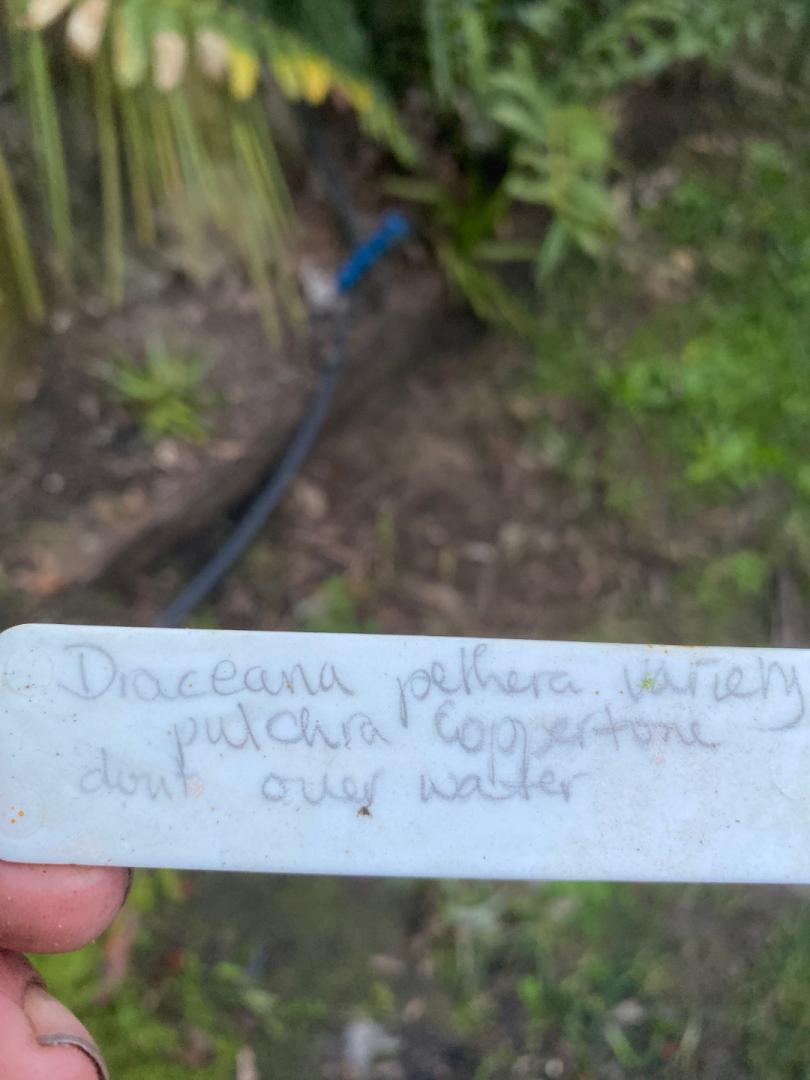 Draceana pethera variety
pulchra Coppertone
dont over water